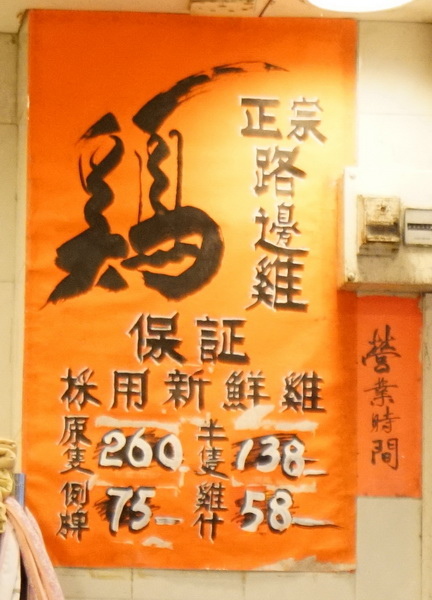 鷄
正宗
路邊雞
保証
採用新鮮雞
原隻 260 半隻 138
例牌 75 雞什 58
營業時間